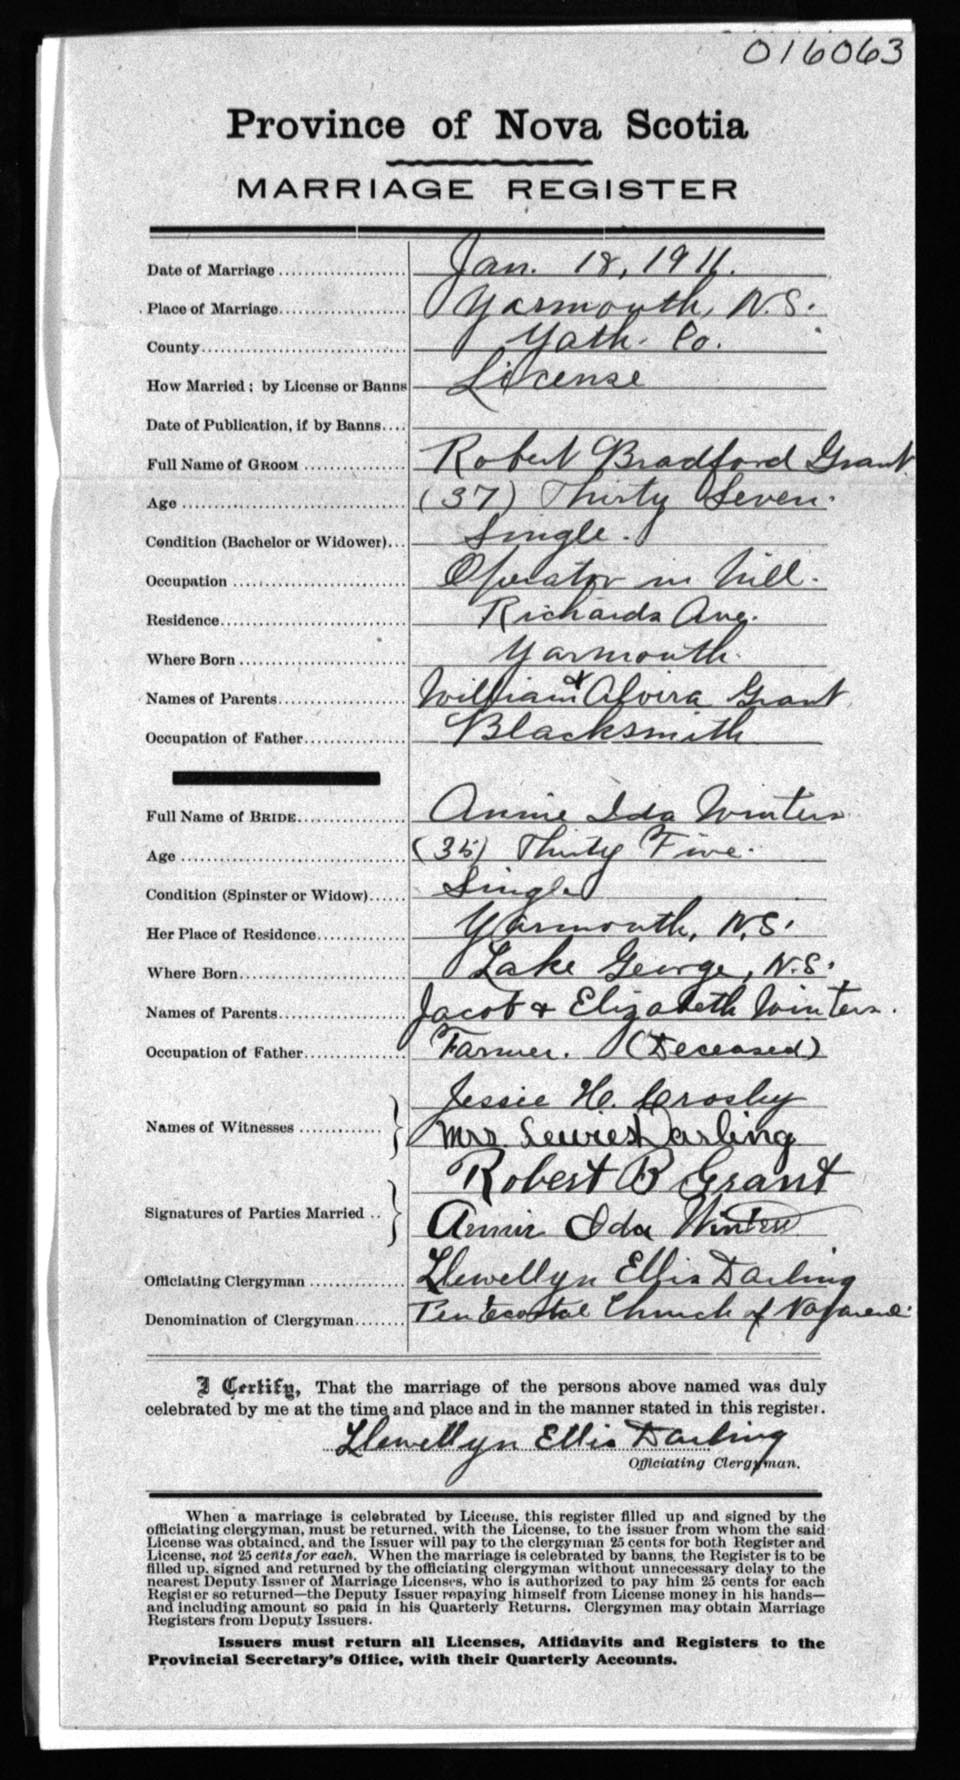 016063
Province of Nova Scotia
MARRIAGE REGISTER
Date of Marriage.................... Jan. 18, 1911.
Place of Marriage.................... Yarmouth, N.S.
County................................ Yath. Co.
How Married; by License or Banns License
Date of Publication, if by Banns....
Full Name of GROOM ................ Robert Bradford Grant
Age ................................... (37) Thirty Seven.
Condition (Bachelor or Widower)... Single.
Occupation ........................... Operator in Mill.
Residence............................. Richards Ave.
Where Born ........................... Yarmouth.
Names of Parents.................... William & Alvira Grant
Occupation of Father................ Blacksmith
Full Name of BRIDE................. Annie Ida Winters
Age ................................... (35) Thirty Five.
Condition (Spinster or Widow)...... Single
Her Place of Residence.............. Yarmouth, N.S.
Where Born........................... Lake George, N.S.
Names of Parents.................... Jacob & Elizabeth Winters.
Occupation of Father................ Farmer. (Deceased)
Jessie H. Crosby
Names of Witnesses .............
Mrs. Darling
Robert B Grant
Signatures of Parties Married ..
Annie Ida Winters
Officiating Clergyman ............... Llewellyn Ellis Darling
Denomination of Clergyman........ Pentecostal Church of Nazarene.
I Certify, That the marriage of the persons above named was duly
celebrated by me at the time and place and in the manner stated in this register.
Llewellyn Ellis Darling
Officiating Clergyman.
When a marriage is celebrated by License, this register filled up and signed by the
officiating clergyman, must be returned, with the License, to the issuer from whom the said
License was obtained, and the Issuer will pay to the clergyman 25 cents for both Register and
License, not 25 cents for each. When the marriage is celebrated by banns, the Register is to be
filled up, signed and returned by the officiating clergyman without unnecessary delay to the
nearest Deputy Issuer of Marriage Licenses, who is authorized to pay him 25 cents for each
Register so returned—the Deputy Issuer repaying himself from License money in his hands—
and including amount so paid in his Quarterly Returns. Clergymen may obtain Marriage
Registers from Deputy Issuers.
Issuers must return all Licenses, Affidavits and Registers to the
Provincial Secretary's Office, with their Quarterly Accounts.